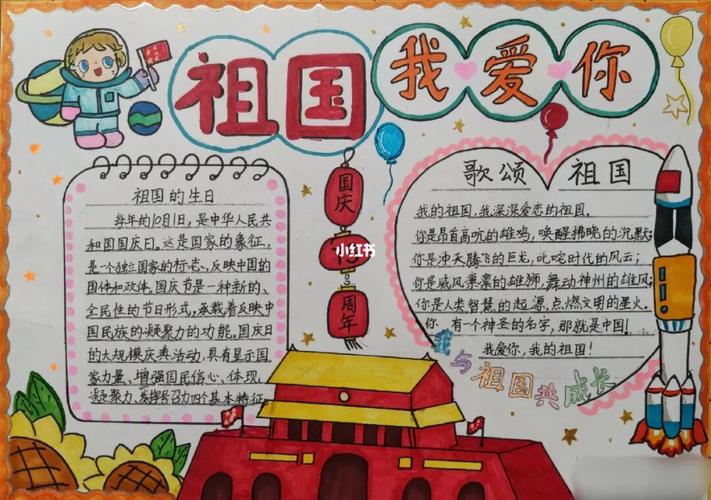 祖国
我爱你
祖国的生日
每年的10月1日，是中华人民共
和国国庆日。这是国家的象征，
是一个独立国家的标志、反映中国的
国体和政体。国庆节是一种新的、
全民性的节日形式，承载着反映中
国民族的凝聚力的功能。国庆日
的大规模庆典活动，具有显示国
家力量、增强国民信心、体现
凝聚力、发挥号召力四个基本特征。
国庆
小红书
周年
歌颂 祖国
我的祖国，我深深爱恋的祖国。
你是昂首高吭的雄鸡，唤醒拂晓的沉默；
你是冲天腾飞的巨龙，叱咤时代的风云；
你是威风凛凛的雄狮，舞动神州的雄风；
你是人类智慧的起源，点燃文明的星火。
你 有一个神圣的名字，那就是中国！
我爱你，我的祖国！
我与祖国共成长